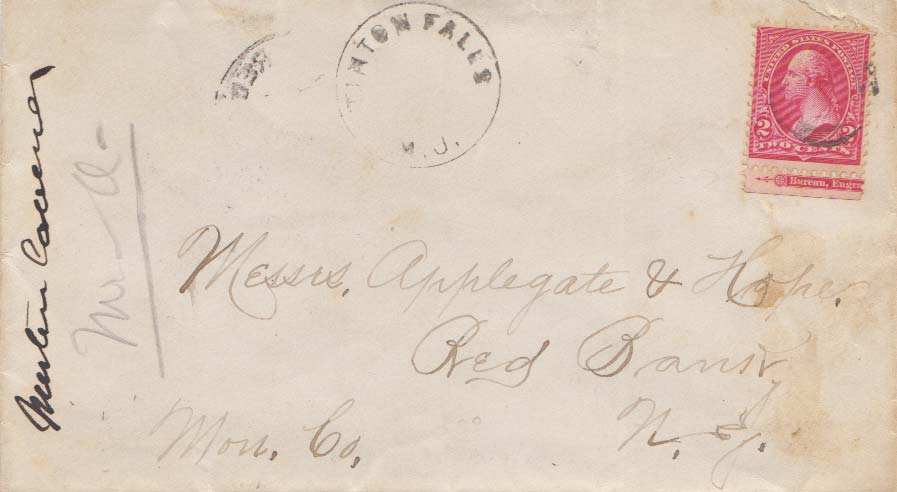 TINTON FALLS
N.J.
UNITED STATES POSTAGE
2 2
TWO CENTS
Bureau, Engra
Messrs. Applegate & Hope.
Red Bank
Mon. Co. N. J.